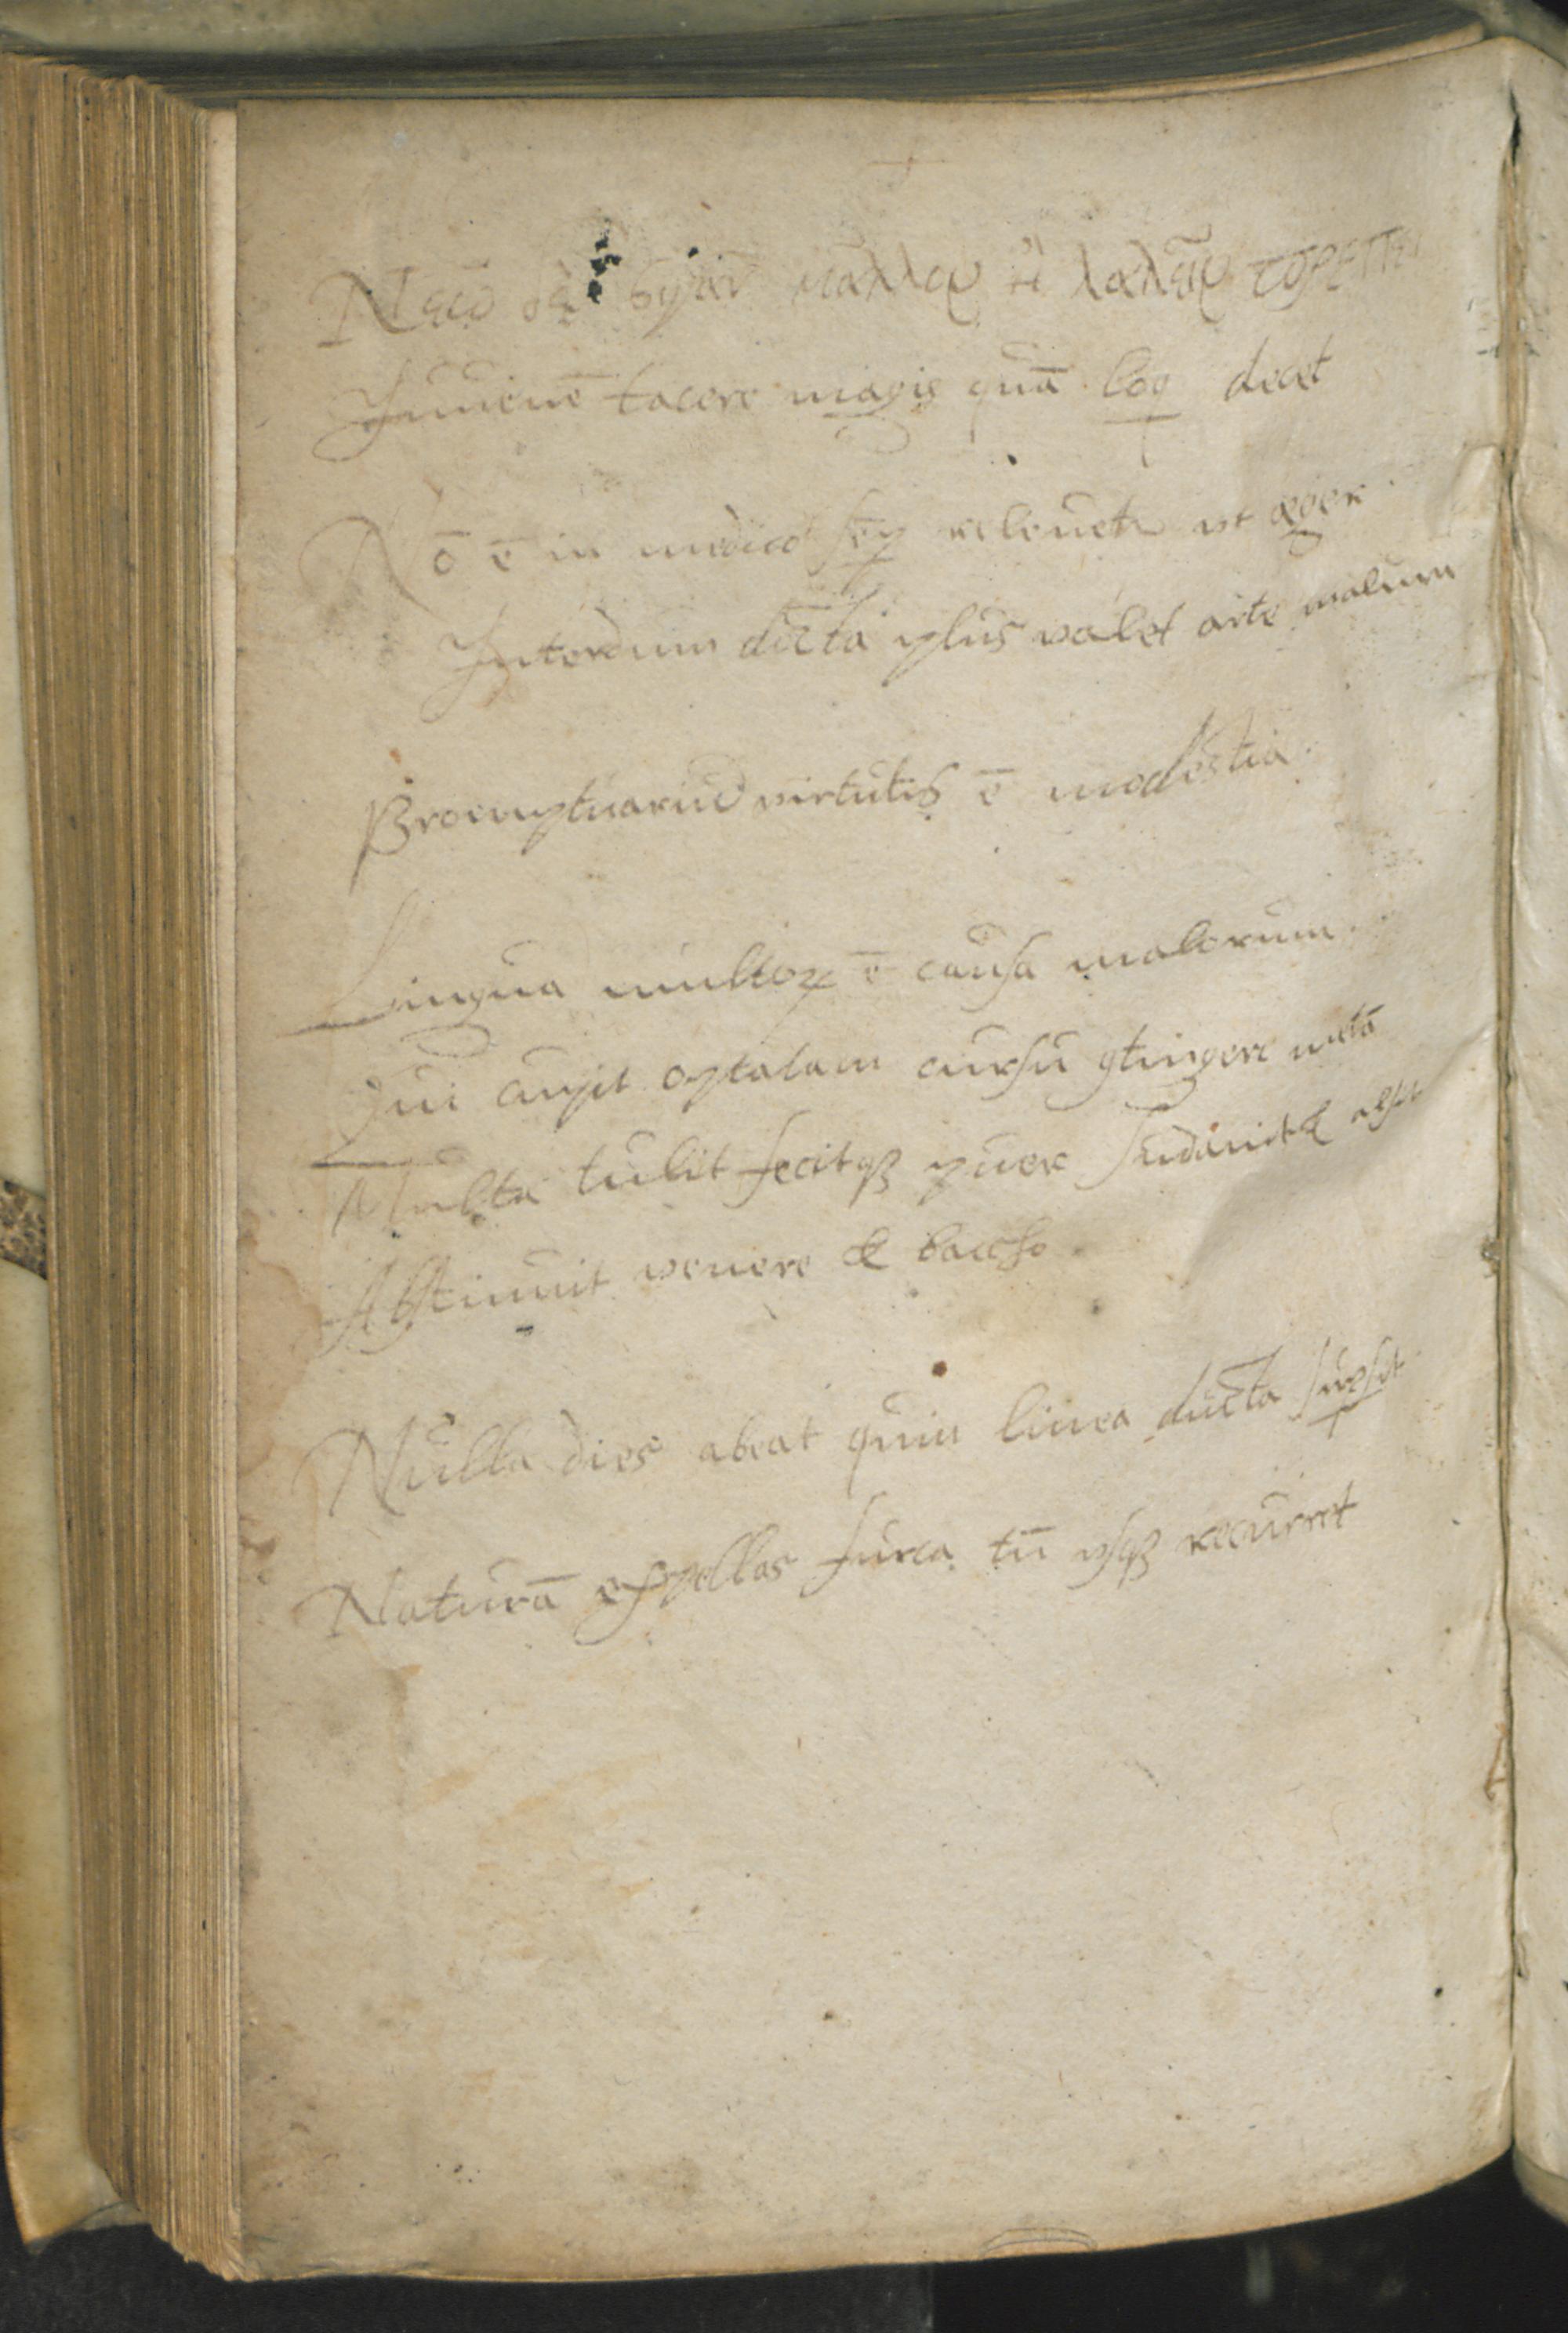 Νέῳ δὲ σιγᾶν μᾶλλον ἢ λαλεῖν πρέπει
Juuenē tacere magis quā loq decet
Nō ē in medico semp releuetr vt æger.
Interdum docta plus valet arte malum
Promptuariū virtutis ē modestia.
Lingua multoꝝ ē causa malorum.
Qui cupit optatam cursu ꝯtingere metā
Multa tulit fecitqꝫ puer sudauit & alsit
Abstinuit venere & baccho.
Nulla dies abeat quin linea ducta supsit
Naturā expellas furca tn̄ vsqꝫ recurret